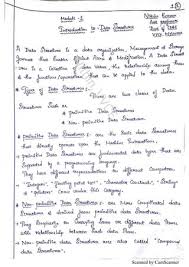 Module-1
Introduction to Data Structures
Nikhil Kumar
Asst professor
Dept of
A Data Structure is a data organization, Management & Storage
format that Enables efficient Access & Modification. A Data
is a Collection of data values, the relationship among them
and the functions/operations that can be applied to the data.
* Types of Data Structures :
There are two classes of Data
Structures Such as
* primitive Data Structures
* Non-primitive Data Structures
* primitive Data Structures :- are the basic data Structures
that directly operate upon the Machine Instructions.
* primitive Data Structures are fundamental data types that are
Supported by a programming language.
* They have different representations on different Computers.
* "Integer", "floating point", "character Constant", "String"
& "pointers" come under this category.
* Non-primitive Data Structures :- are more Complicated data
Structures & derived from primitive data Structures.
* They Emphasize on Grouping Same or different data items
with relationship between each data item.
* Non-primitive data Structures are also called "Compound
data Structures".
Scanned by CamScanner